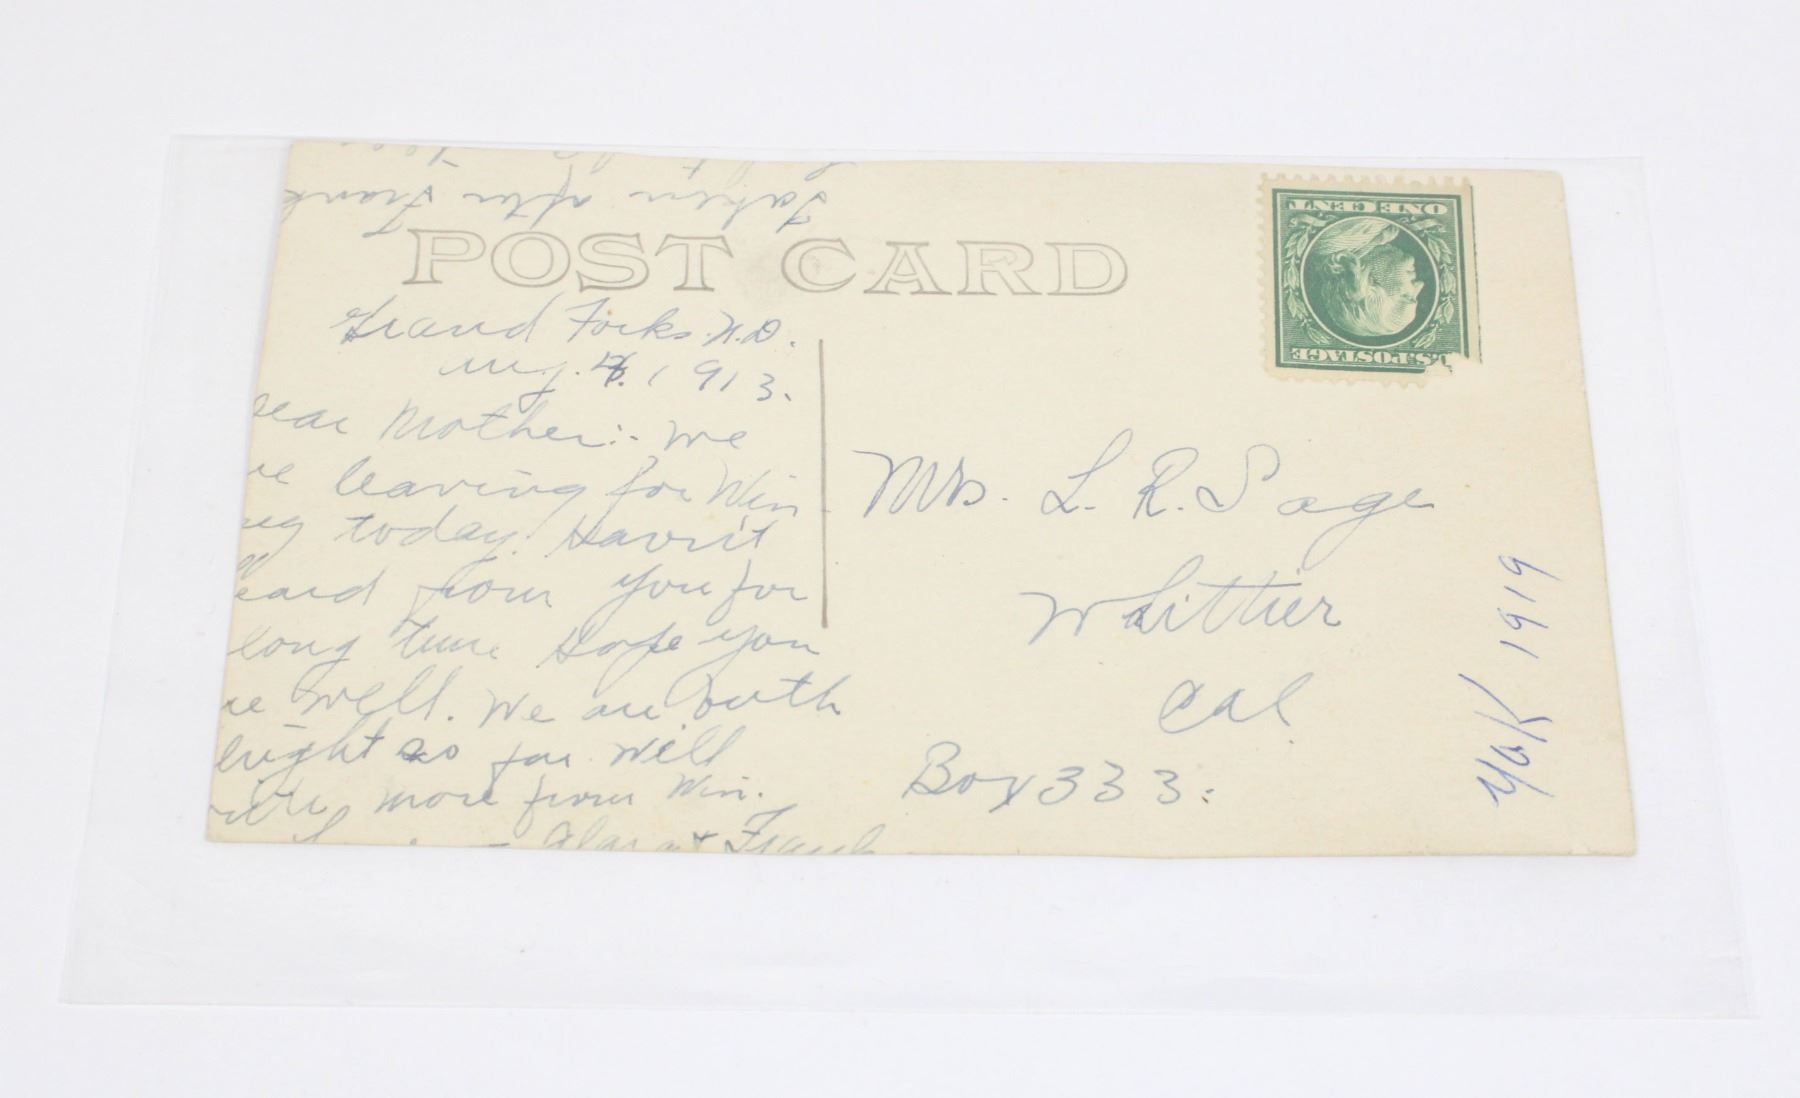 Taken after Frank
POST CARD
ONE CENT
U.S. POSTAGE
Grand Forks. N.D.
Aug. 4. 1913.
Dear Mother:- We
are leaving for Win-
peg today. Havn't
heard from you for
long time Hope you
are well. We are both
alright so far. Will
write more from Win.
Clara + Frank
Mrs. L. R. Sage
Whittier
Cal
Box 333.
1919